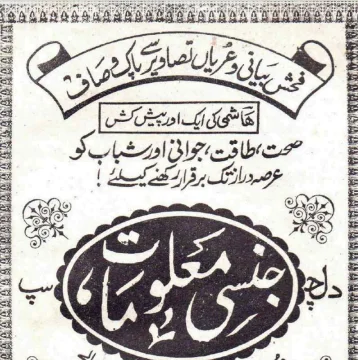 فحش بیانی و عریاں تصاویر سے پاک و صاف
ھاشمی کی ایک اور پیش کش
صحت، طاقت، جوانی اور شباب کو
عرصہ دراز تک برقرار رکھنے کیلئے!
دلچسپ
جنسی معلومات